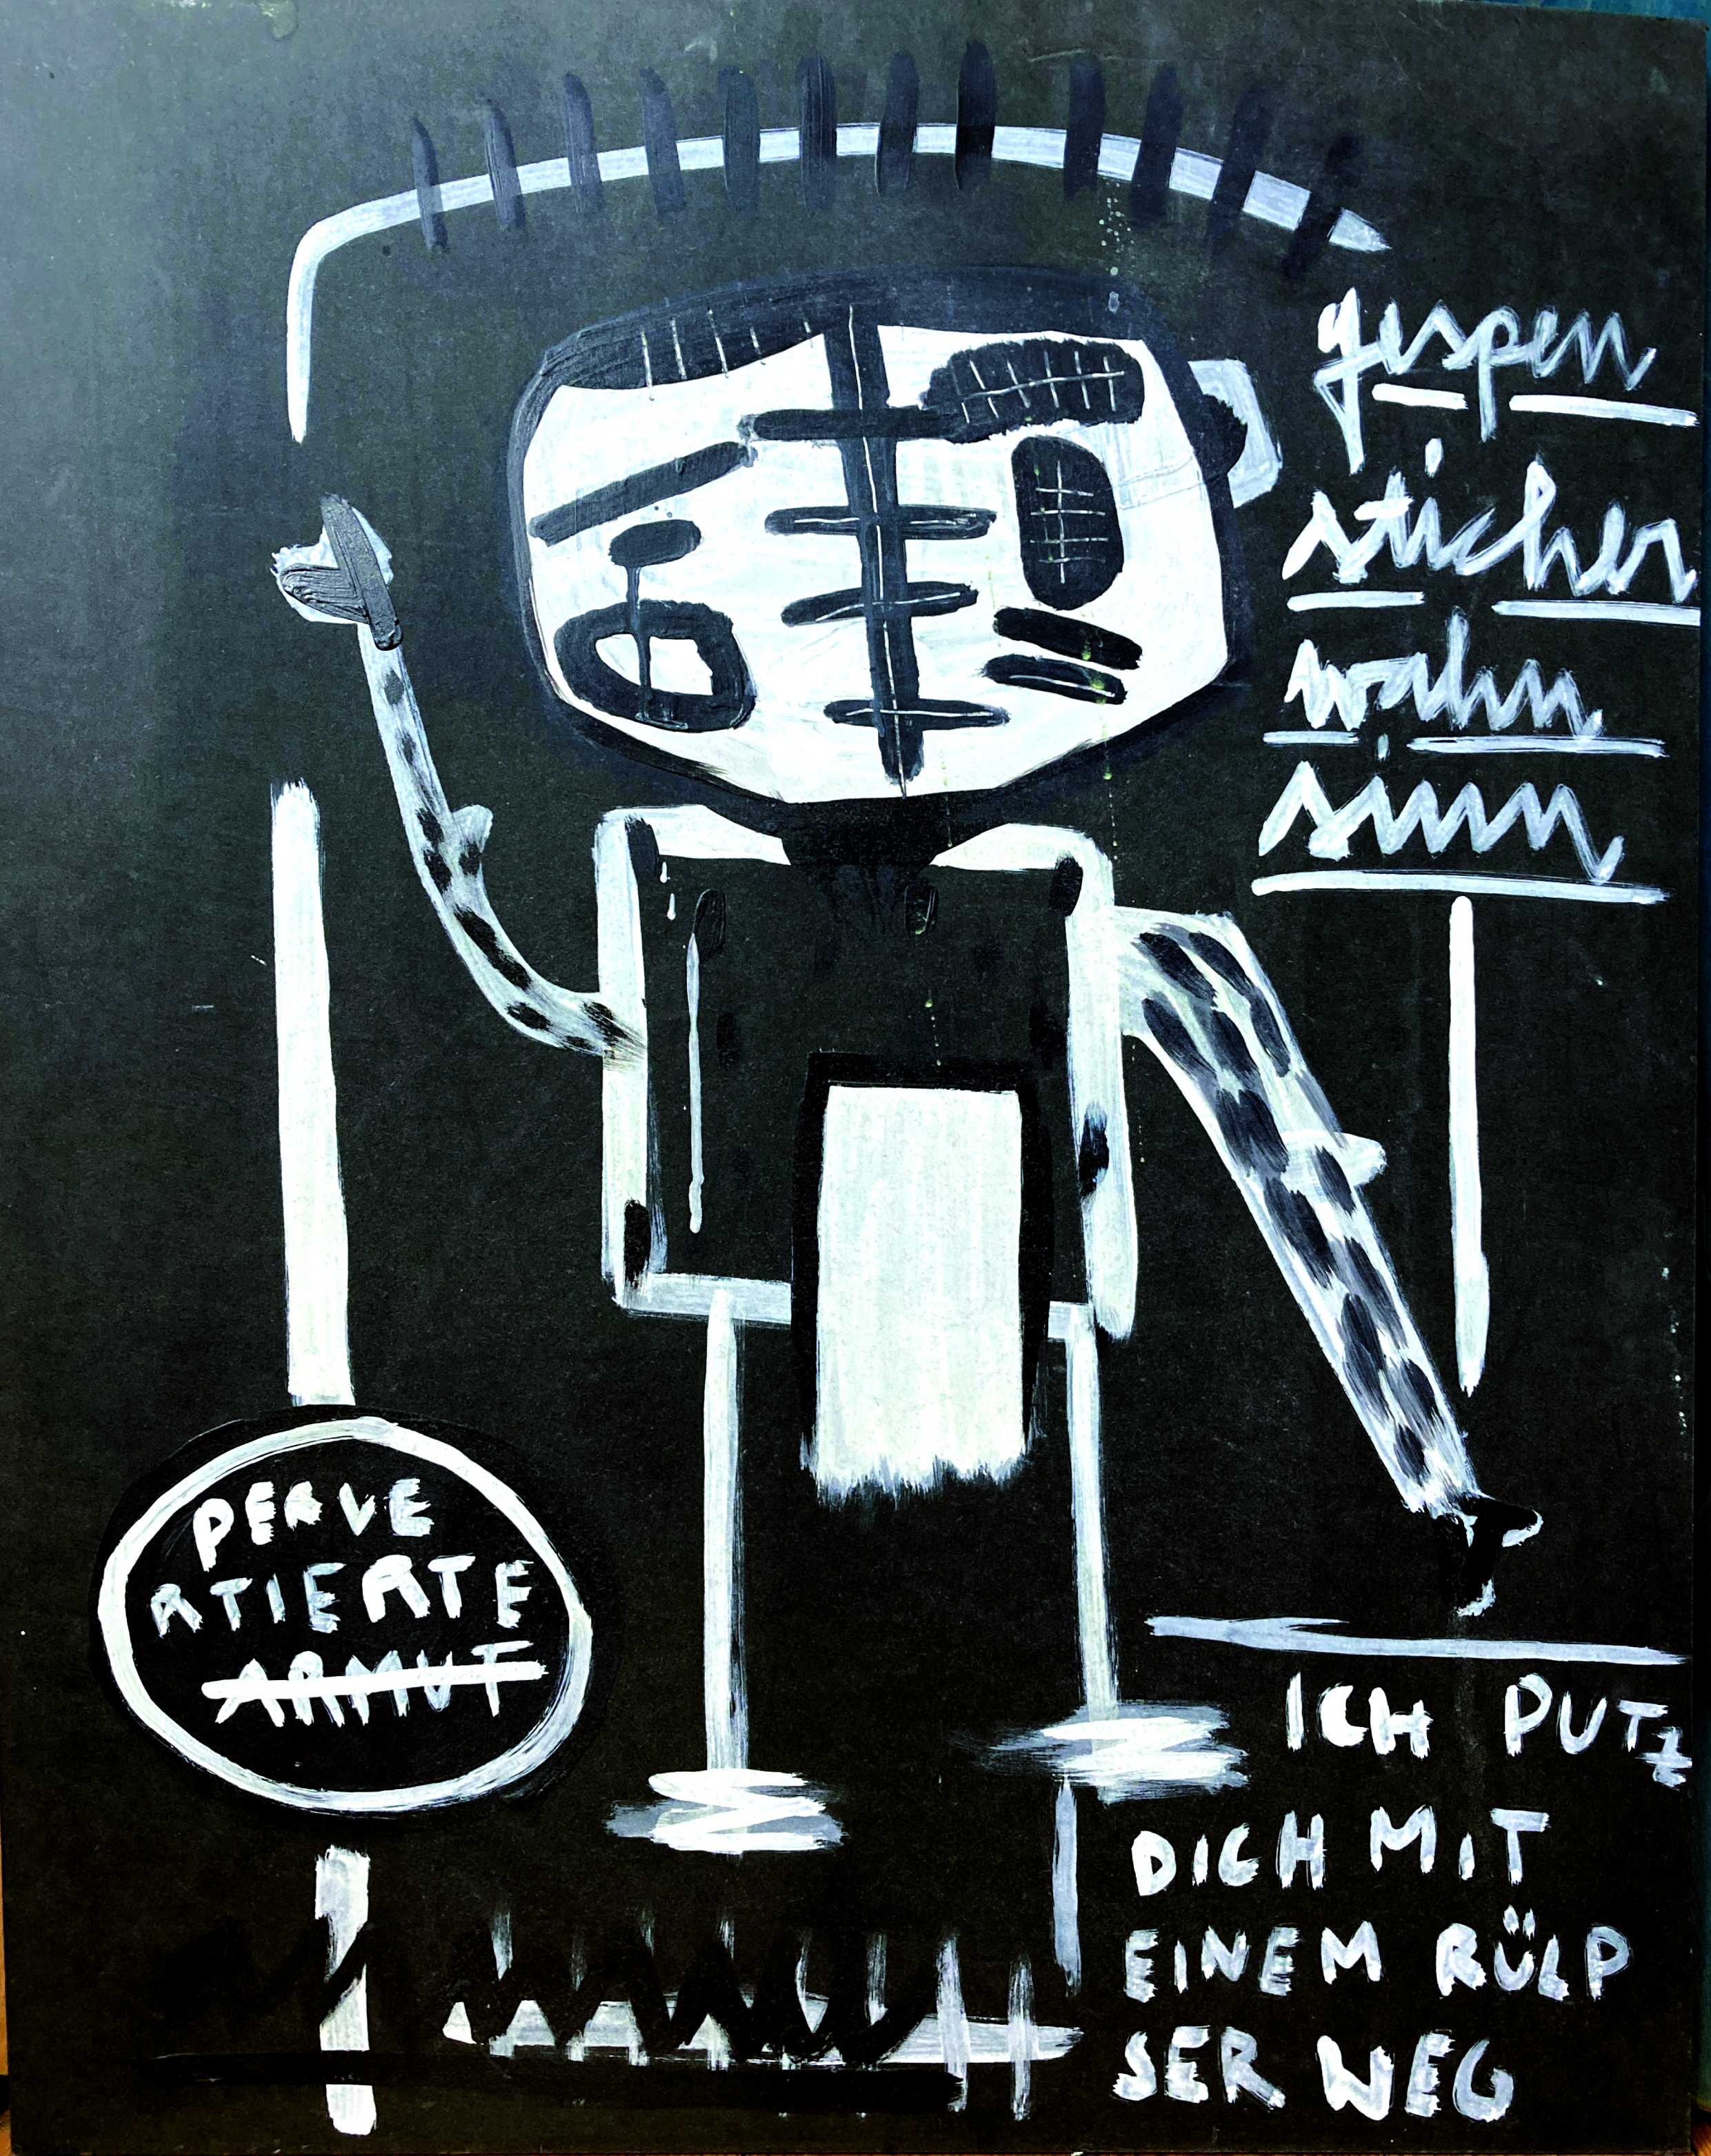 gespen
sticher
wahn
sinn
PERVE
RTIERTE
ARMUT
ICH PUTZ
DICH MIT
EINEM RÜLP
SER WEG